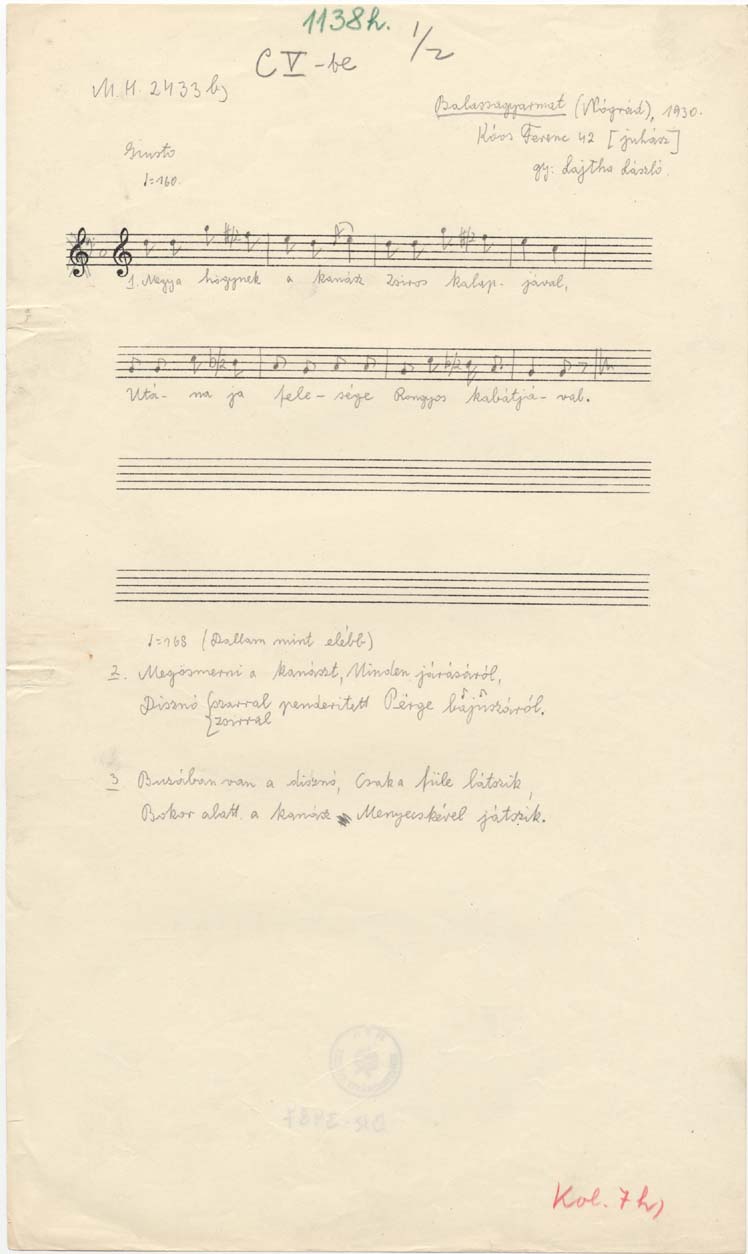 1138h.
C V-be 1/2
M.H. 2433 b)
Balassagyarmat (Nógrád), 1930.
Kóos Ferenc 42 [juhász]
gy: Lajtha László.
Giusto
♩=160.
1. Megya högynek a kanász Zsiros kalap- jával,
Utá- na ja fele- sége Rongyos kabátjá- val.
♩=168 (Dallam mint elébb)
2. Megösmerni a kanászt, Minden járásáról,
Disznó {szarral penderitett Pérge bajúszáról.
{zsirral
3 Buzában van a disznó, Csaka füle látszik,
Bokor alatt a kanász Menyecskével játszik.
Kol. 7h)